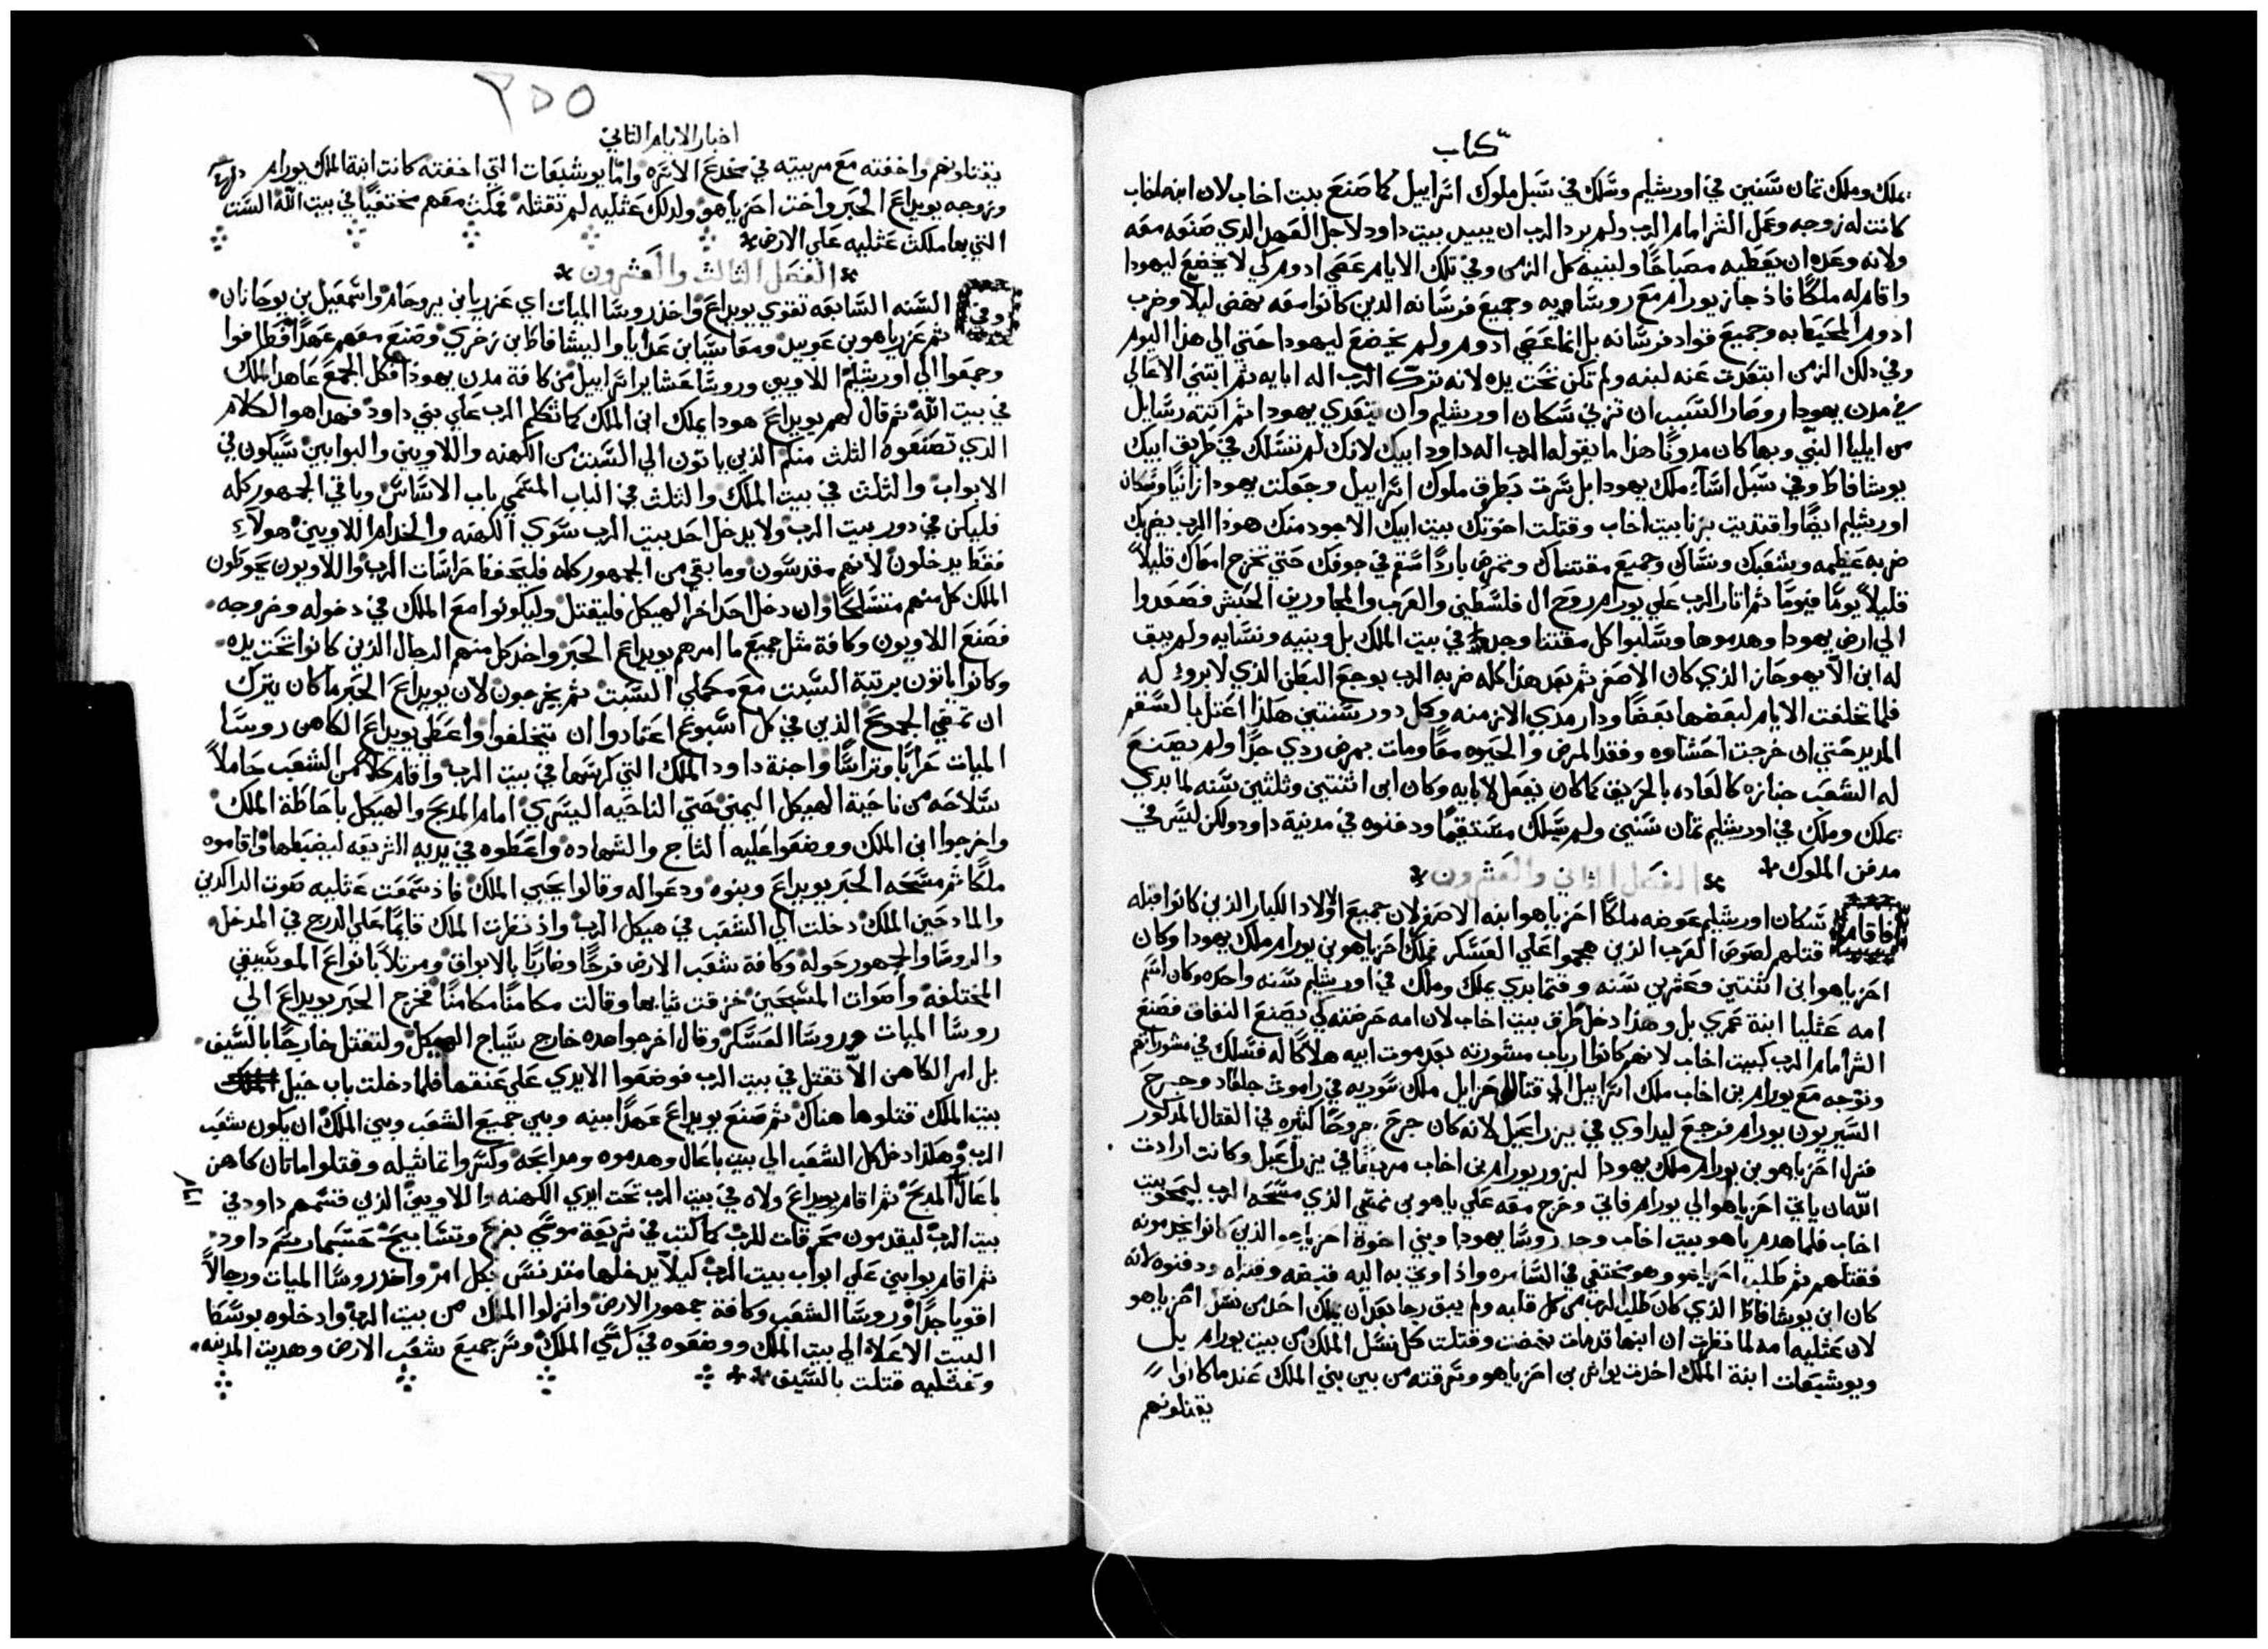 كتاب
يملك وملك تمان سنين في اورشليم وسلك في سبل ملوك اسراييل كما صنع بيت اخاب لان ابنه اخاب
كانت له زوجه وعمل الشر امام الرب ولم يرد الرب ان يبيد بيت داود لاجل العهد الدي صنعه معه
ولانه وعده ان يعطيه مصباحا ولبنيه كل الزمن وفي تلك الايام عصي ادوم كي لا يخضع ليهودا
واقام له ملكا فاذ جاز يورام مع روساه وجميع فرسانه الدين كانوا معه نهض ليلا وضرب
ادوم المحيط به وجميع قواد فرسانه بل انما عصي ادوم ولم يخضع ليهودا حتي الي هذا اليوم
وفي دلك الزمن ابتعدت عنه لبنه ولم تكن تحت يده لانه ترك الرب اله ابايه ثم ابتني الاعالي
في مدن يهودا وصار السبب ان تزني سكان اورشليم وان يتعدي يهودا ثم اتته رسايل
من ايليا النبي وبها كان مدونا هذا ما يقوله الرب اله داود ابيك لانك لم تسلك في طريق ابيك
يوشافاط وفي سبل اسا ملك يهودا بل سرت بطرق ملوك اسراييل وجعلت يهودا زانيا وسكان
اورشليم ايضا واقتديت بزنا بيت اخاب وقتلت اخوتك بيت ابيك الاجود منك هودا الرب يضربك
ضربه عظيمه وشعبك ونساك وجميع مقتناك وتمرض باردا سقم في جوفك حتي تخرج امعاك قليلا
قليلا يوما فيوما ثم اثار الرب علي يورام روح ال فلسطين والعرب المجاورين الحبش فصعدوا
الي ارض يهودا وهدموها وسلبوا كل مقتنا وجد في بيت الملك بل وبنيه ونسايه ولم يبق
له ابن الا يهوحاز الذي كان الاصغر ثم بعد هذا كله ضربه الرب بوجع البطن الذي لا برو له
فلما تخلفت الايام لبعضها بعضا ودار مدي الازمنه وكمل دور سنتين هكذا اعتل بالسقم
المديد حتي ان خرجت احشاوه وفقد المرض والحيوه معا ومات بمرض ردي جدا ولم يصنع
له الشعب جنازه كالعاده بالحريق كما كان يفعل لابايه وكان ابن اثنتين وثلثين سنه لما بدي
يملك وملك في اورشليم تمان سنين ولم يسلك مستقيما ودفنوه في مدينة داود ولكن ليس في
مدفن الملوك
الفصل الثاني والعشرون
فاقام سكان اورشليم عوضه ملكا احزياهو ابنه الاصغر لان جميع الاولاد الكبار الذين كانوا قبله
قتلهم لصوص العرب الذين هجموا علي العسكر فملك احزياهو بن يورام ملك يهودا وكان
احزياهو ابن اثنتين وعشرين سنه وقتما بدي يملك وملك في اورشليم سنه واحده وكان اسم
امه عثليا ابنة عمري بل وهذا دخل طرق بيت اخاب لان امه حرضته كي يصنع النفاق فصنع
الشر امام الرب كبيت اخاب لانهم كانوا ارباب مشورته بعد موت ابيه هلاكا له فسلك في مشوراتهم
وتوجه مع يورام بن اخاب ملك اسراييل الي قتال حزايل ملك سوريه في راموت جلعاد وجرح
السيريون يورام فرجع ليداوي في يزراعيل لانه كان جرح جروحا كثيره في القتال المدكور
فنزل احزياهو بن يورام ملك يهودا ليزور يورام بن اخاب مريضا في يزراعيل وكانت ارادت
الله ان ياتي احزياهو الي يورام فاتي وخرج معه علي ياهو بن نمشي الذي مسحه الرب ليمحو بيت
اخاب فلما هدم ياهو بيت اخاب وجد روسا يهودا وبني اخوة احزياهو الذين كانوا يخدمونه
فقتلهم ثم طلب احزياهو وهو مختفي في السامره واذ اوتي به اليه قبضه وقتله ودفنوه لانه
كان ابن يوشافاط الذي كان طلب الرب من كل قلبه ولم يبق رجا بعد ان يملك احد من نسل احزياهو
لان عثليه امه لما نظرت ان ابنها قد مات نهضت وقتلت كل نسل الملك من بيت يورام بل
ويوشبعات ابنة الملك اخدت يواش بن احزياهو وسرقته من بين بني الملك عندما كانوا
يقتلونهم
٢٥٥
اخبار الايام الثاني
يقتلونهم واخفته مع مربيته في مخدع الاسره واما يوشبعات التي اخفته كانت ابنة الملك يورام
وزوجه يويداع الحبر واخت احزياهو ولدلك عثليه لم تقتله فمكث معهم مختفيا في بيت الله الست
التي بها ملكت عثليه علي الارض
الفصل الثالث والعشرون
وفي السنه السابعه تقوي يويداع واخذ روسا الميات اي عزريا بن يروحام واسمعيل بن يوحانان
ثم عزرياهو بن عوبيد ومعاسا بن عدايا واليشافاط بن زخري وصنع معهم عهدا فطافوا
وجمعوا الي اورشليم اللاويين وروسا عشاير اسراييل من كافة مدن يهودا فكل الجمع عاهد الملك
في بيت الله ثم قال لهم يويداع هودا يملك ابن الملك كما تكلم الرب علي بني داود فهدا هو الكلام
الذي تصنعوه الثلث منكم الذين ياتون الي السبت من الكهنه واللاويين والبوابين سيكون في
الابواب والثلث في بيت الملك والثلث في الباب المسمي باب الاساس وباقي الجمهور كله
فليكن في دور بيت الرب ولا يدخل احد بيت الرب سوي الكهنه والخدام اللاويين هولاء
فقط يدخلون لانهم مقدسون وما بقي من الجمهور كله فليحفظ حراسات الرب واللاويون يحوطون
الملك كل منهم متسلحا وان دخل احد اخر الهيكل فليقتل وليكونوا مع الملك في دخوله وخروجه
فصنع اللاويون وكافة مثل جميع ما امرهم يويداع الحبر واخد كل منهم الرجال الذين كانوا تحت يده
وكانوا ياتون برتبة السبت مع مكملي السبت ثم يخرجون لان يويداع الحبر ما كان يترك
ان تمضي الجموع الذين في كل اسبوع اعتادوا ان يتخلفوا واعطي يويداع الكاهن روسا
الميات حرابا وتراسا واجنة داود الملك التي كرسها في بيت الرب واقام كلا من الشعب حاملا
سلاحه من ناحية الهيكل اليمني حتي الناحيه اليسري امام المدبح والهيكل باحاطة الملك
واخرجوا ابن الملك ووضعوا عليه التاج والشهاده واعطوه في يديه الشريعه ليضبطها واقاموه
ملكا ثم مسحه الحبر يويداع وبنوه ودعوا له وقالوا يحيي الملك فاذ سمعت عثليه صوت الراكدين
والمادحين الملك دخلت الي الشعب في هيكل الرب واذ نظرت الملك قايما علي الدرج في المدخل
والروسا والجمهور حوله وكافة شعب الارض فرحا وضاربا بالابواق ومرتلا بانواع الموسيقي
المختلفه واصوات المسبحين خزقت ثيابها وقالت مكامنا مكامنا فخرج الحبر يويداع الي
روسا الميات وروسا العسكر وقال اخرجوا هده خارج سياج الهيكل ولتقتل خارجا بالسيف
بل امر الكاهن الا تقتل في بيت الرب فوضعوا الايدي علي عنقها فلما دخلت باب خيل
بيت الملك قتلوها هناك ثم صنع يويداع عهدا بينه وبين جميع الشعب وبين الملك ان يكون شعب
الرب وهكذا دخل كل الشعب الي بيت باعال وهدموه ومدابحه وكسروا تماثيله وقتلوا ماتان كاهن
باعال المدبح ثم اقام يويداع ولاه في بيت الرب تحت ايدي الكهنه واللاويين الذين قسمهم داود في
بيت الرب ليقدمون محرقات للرب كما كتب في شريعة موسي بفرح وتسابيح حسبما رسم داود
ثم اقام بوابين علي ابواب بيت الرب كيلا يدخلها متدنس بكل امر واخد روسا الميات ورجالا
اقويا جدا وروسا الشعب وكافة جمهور الارض وانزلوا الملك من بيت الرب وادخلوه بوسط
البيت الاعلاه الي بيت الملك ووضعوه في كرسي الملك وسر جميع شعب الارض وهديت المدينه
وعثليه قتلت بالسيف